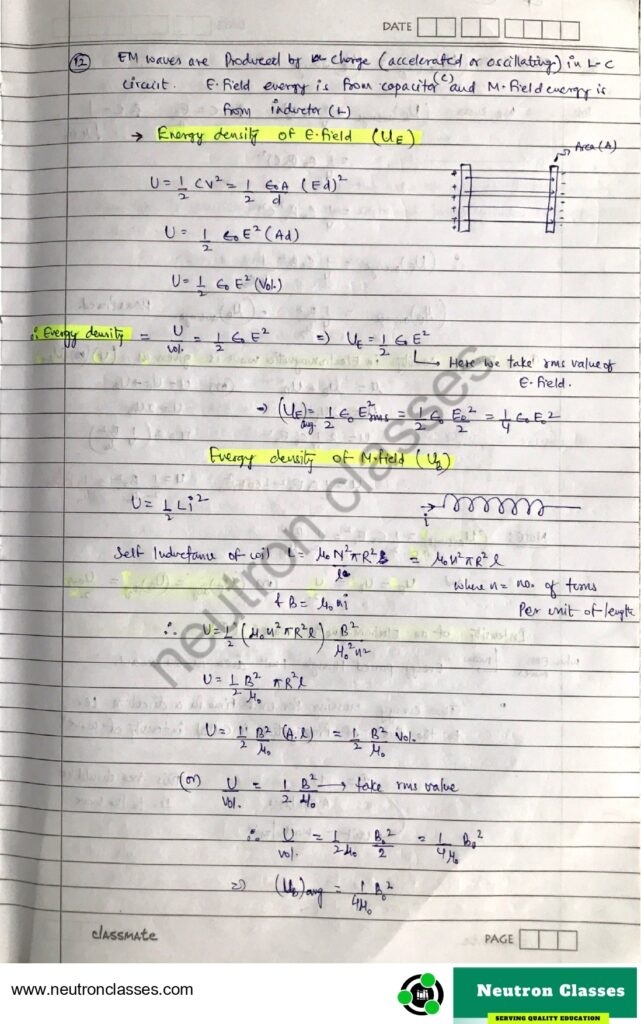 DATE
(12) EM waves are Produced by charge (accelerated or oscillating) in L-C
circuit. E-field energy is from capacitor (C) and M-field energy is
from inductor (L)
→ Energy density of E-field (U_E)
Area (A)
U = 1/2 CV² = 1/2 ε₀A/d (Ed)²
U = 1/2 ε₀ E² (Ad)
U = 1/2 ε₀ E² (Vol.)
∴ Energy density = U/vol. = 1/2 ε₀ E² ⇒ U_E = 1/2 ε₀ E²
Here we take rms value of
E-field.
⇒ (U_E)avg = 1/2 ε₀ E²rms = 1/2 ε₀ E₀²/2 = 1/4 ε₀ E₀²
Energy density of M-field (U_B)
U = 1/2 Li²
i
Self Inductance of coil L = μ₀N²πR²/l = μ₀n²πR²l
where n = no. of turns
Per unit of length
& B = μ₀ni
∴ U = 1/2 (μ₀n²πR²l) B²/μ₀²n²
U = 1/2 B²/μ₀ πR²l
U = 1/2 B²/μ₀ (A.l) = 1/2 B²/μ₀ Vol.
(or) U/Vol. = 1/2 B²/μ₀ → take rms value
∴ U/vol. = 1/2μ₀ B₀²/2 = 1/4μ₀ B₀²
⇒ (U_B)avg = 1/4μ₀ B₀²
neutron classes
classmate
PAGE
www.neutronclasses.com
Neutron Classes
SERVING QUALITY EDUCATION